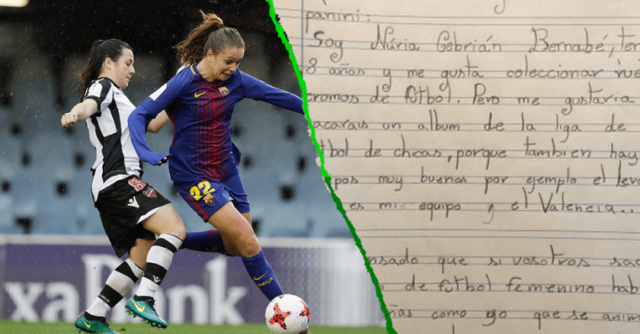 xaBank
22
panini:
Soy Núria Cebrián Bernabé, ten
8 años y me gusta coleccionar
cromos de fútbol. Pero me gustaria
acarais un album de la liga de
tbol de chicas, porque tambien hay
pos muy buenos por ejemplo el leva
es mi equipo y el Valencia...
nsado que si vosotros sac
de fútbol femenino hab
ñas como yo que se anim